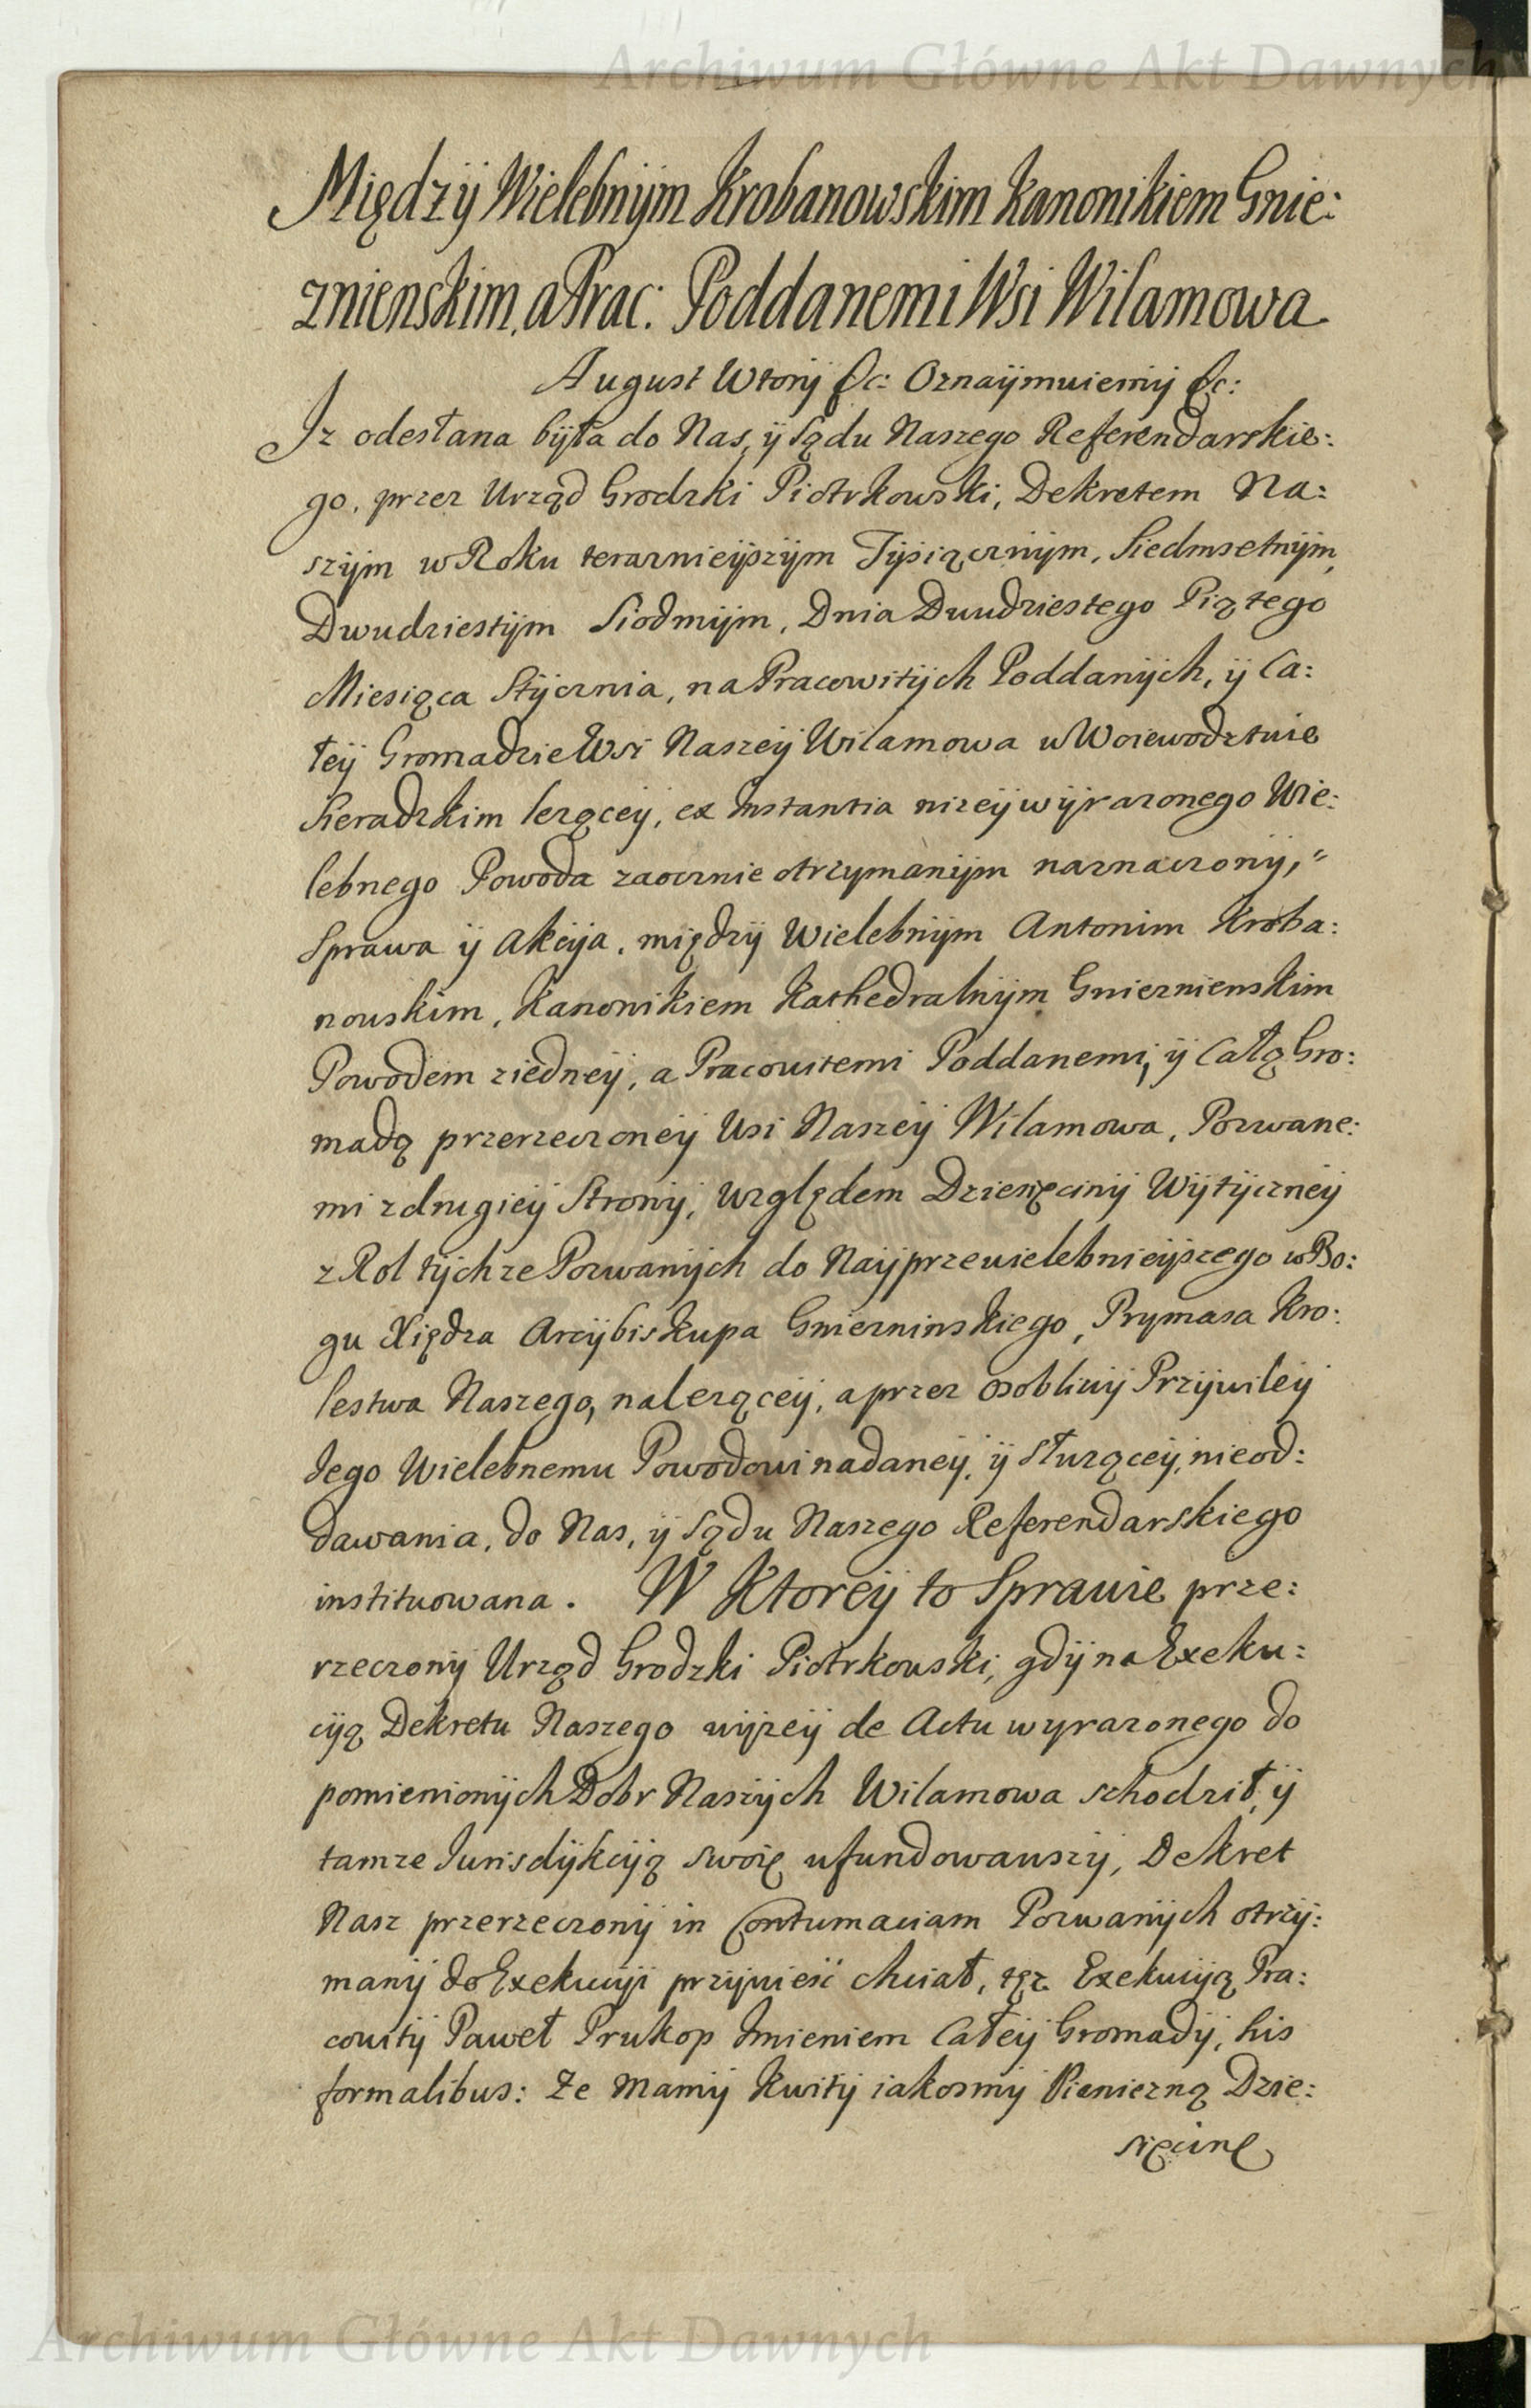 Archiwum Główne Akt Dawnych
Międzÿ Wielebnÿm Krobanowskim Kanonikiem Gnie:
znienskim, a Prac: Poddanemi Wsi Wilamowa
August Wtorÿ &c: Oznaÿmuiemÿ &c:
Iz odesłana bÿła do Nas, ÿ Sądu Naszego Referendarskie:
go, przez Urząd Grodzki Piotrkowski, Dekretem Na:
szÿm w Roku teraznieÿszÿm Tÿsiącznÿm, Siedmsetnÿm,
Dwudziestÿm Siodmÿm, Dnia Dwudziestego Piątego
Miesiąca Stÿcznia, na Pracowitÿch Poddanÿch, ÿ Ca:
łeÿ Gromadzie Wsi Naszeÿ Wilamowa w Woiewodztwie
Sieradzkim lezączeÿ, ex Instantia nizeÿ wÿrazonego Wie:
lebnego Powoda zaocznie otrzymanÿm naznaczonÿ,
Sprawa ÿ Akcÿa, międzÿ Wielebnÿm Antonim Kroba:
nowskim, Kanonikiem Kathedralnÿm Gnieznienskim
Powodem ziedneÿ, a Pracowitemi Poddanemi, ÿ Całą Gro:
madą przerzeczoneÿ Wsi Naszeÿ Wilamowa, Pozwane:
mi zdrugieÿ Stronÿ, względem Dziesięcinÿ Wÿtÿczneÿ
z Rol tÿchze Pozwanÿch do Naÿprzewielebnieÿszego w Bo:
gu Xiędza Arcÿbiskupa Gniezninskiego, Prymasa Kro:
lestwa Naszego, nalezączeÿ, a przez osobliwÿ Przÿwileÿ
Iego Wielebnemu Powodowi nadaneÿ, ÿ słuząceÿ, nieod:
dawania, do Nas, ÿ Sądu Naszego Referendarskiego
instituowana. W Ktoreÿ to Sprawie prze:
rzeczonÿ Urząd Grodzki Piotrkowski, gdÿ na Exeku:
cÿą Dekretu Naszego wÿzeÿ de Actu wyrazonego do
pomienionÿch Dobr Naszÿch Wilamowa schodził, ÿ
tamze Iurisdÿkcÿą swoię ufundowawszÿ, Dekret
Nasz przerzeczonÿ in Contumaciam Pozwanÿch otrzÿ:
manÿ do Exekucÿi przÿwieść chciał, tęz Exekucÿą Pra:
cowitÿ Paweł Prukop Imieniem Całeÿ Gromadÿ, his
formalibus: Ze Mamÿ Kwitÿ iakosmÿ Pieniezną Dzie:
sięcinę
Archiwum Główne Akt Dawnych